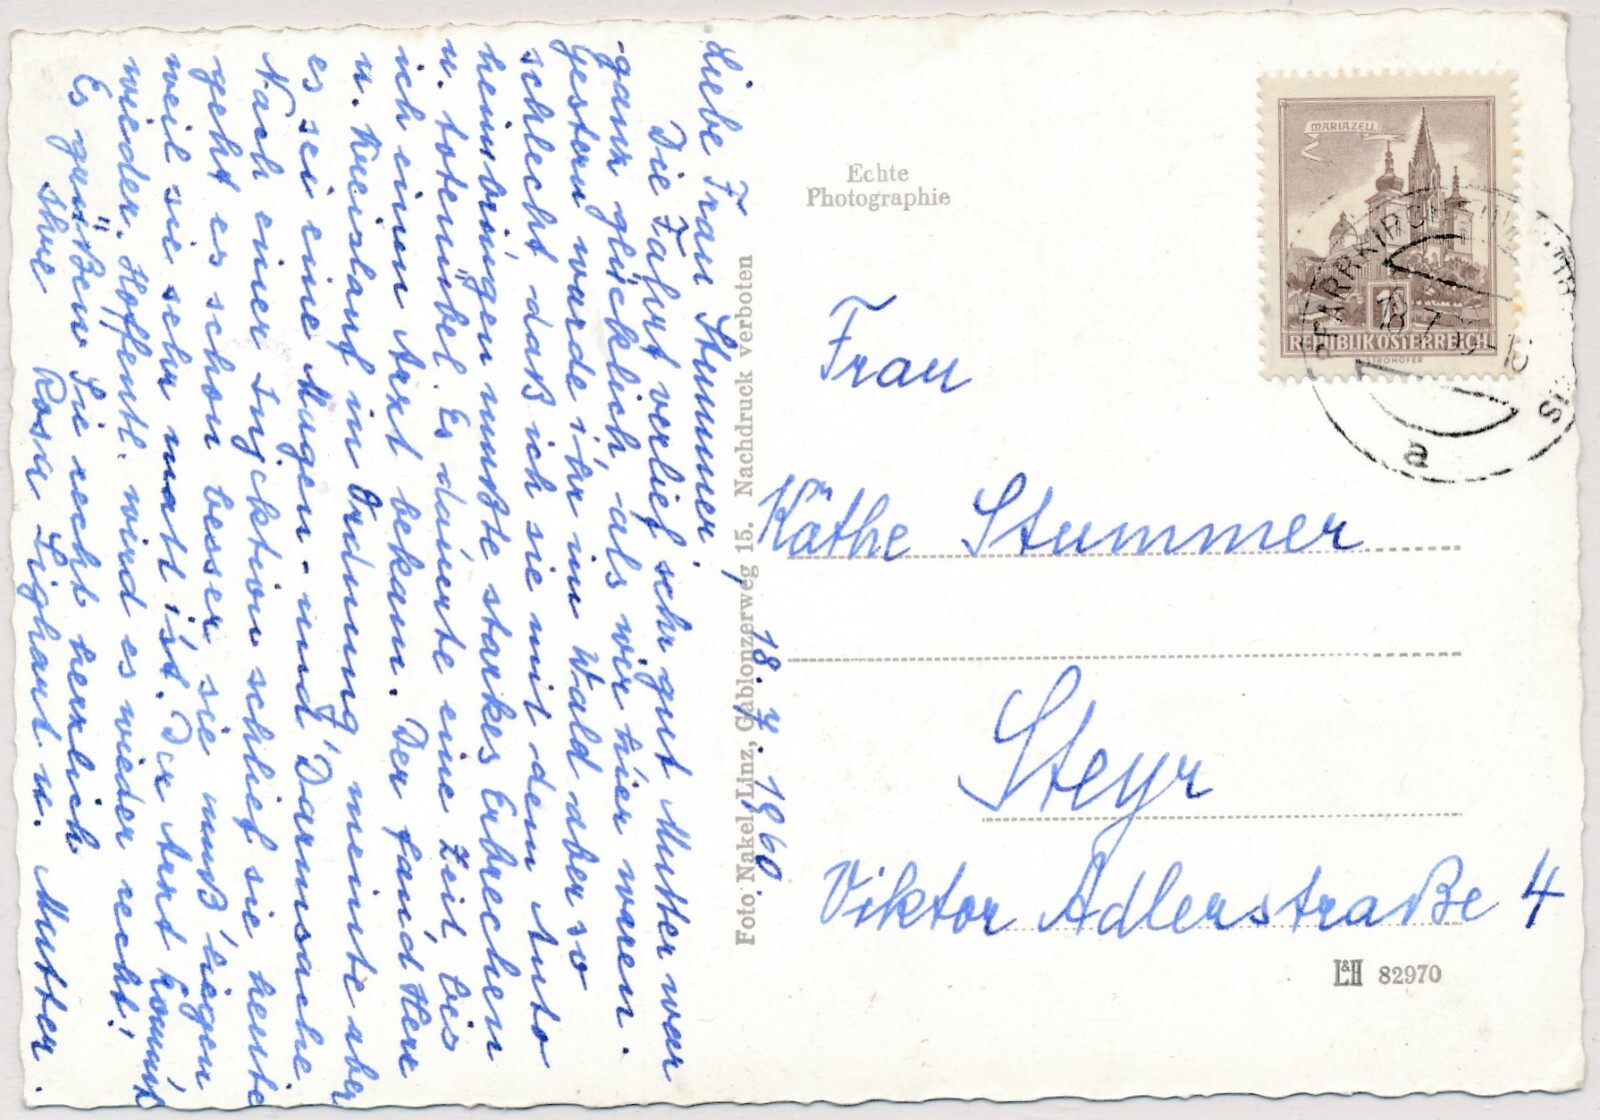 Liebe Frau Stummer, 18.7.1960.
Die Fahrt verlief sehr gut Mutter war
ganz glücklich, als wir hier waren.
Gestern wurde ihr im Wald aber so
schlecht daß ich sie mit dem Auto
heimbringen mußte starkes Erbrechen
u. totenübel. Es dauerte eine Zeit bis
ich einen Arzt bekam. Der fand Herz
u. Kreislauf in Ordnung, meinte aber
es sei eine Magen- und Darmsache.
Nach einer Injektion schlief sie heute
geht es schon besser, sie muß liegen
weil sie sehr matt ist. Der Arzt kommt
wieder. Hoffentl. wird es wieder recht!
Es grüßen Sie recht herzlich
Ihre Rosa Lighart u. Mutter.
Foto Nakel, Linz, Gablonzerweg 15. Nachdruck verboten
Echte
Photographie
MARIAZELL
1
REPUBLIK ÖSTERREICH
PFARRKIRCH
a
Frau
Käthe Stummer
Steyr
Viktor Adlerstraße 4
L&H 82970